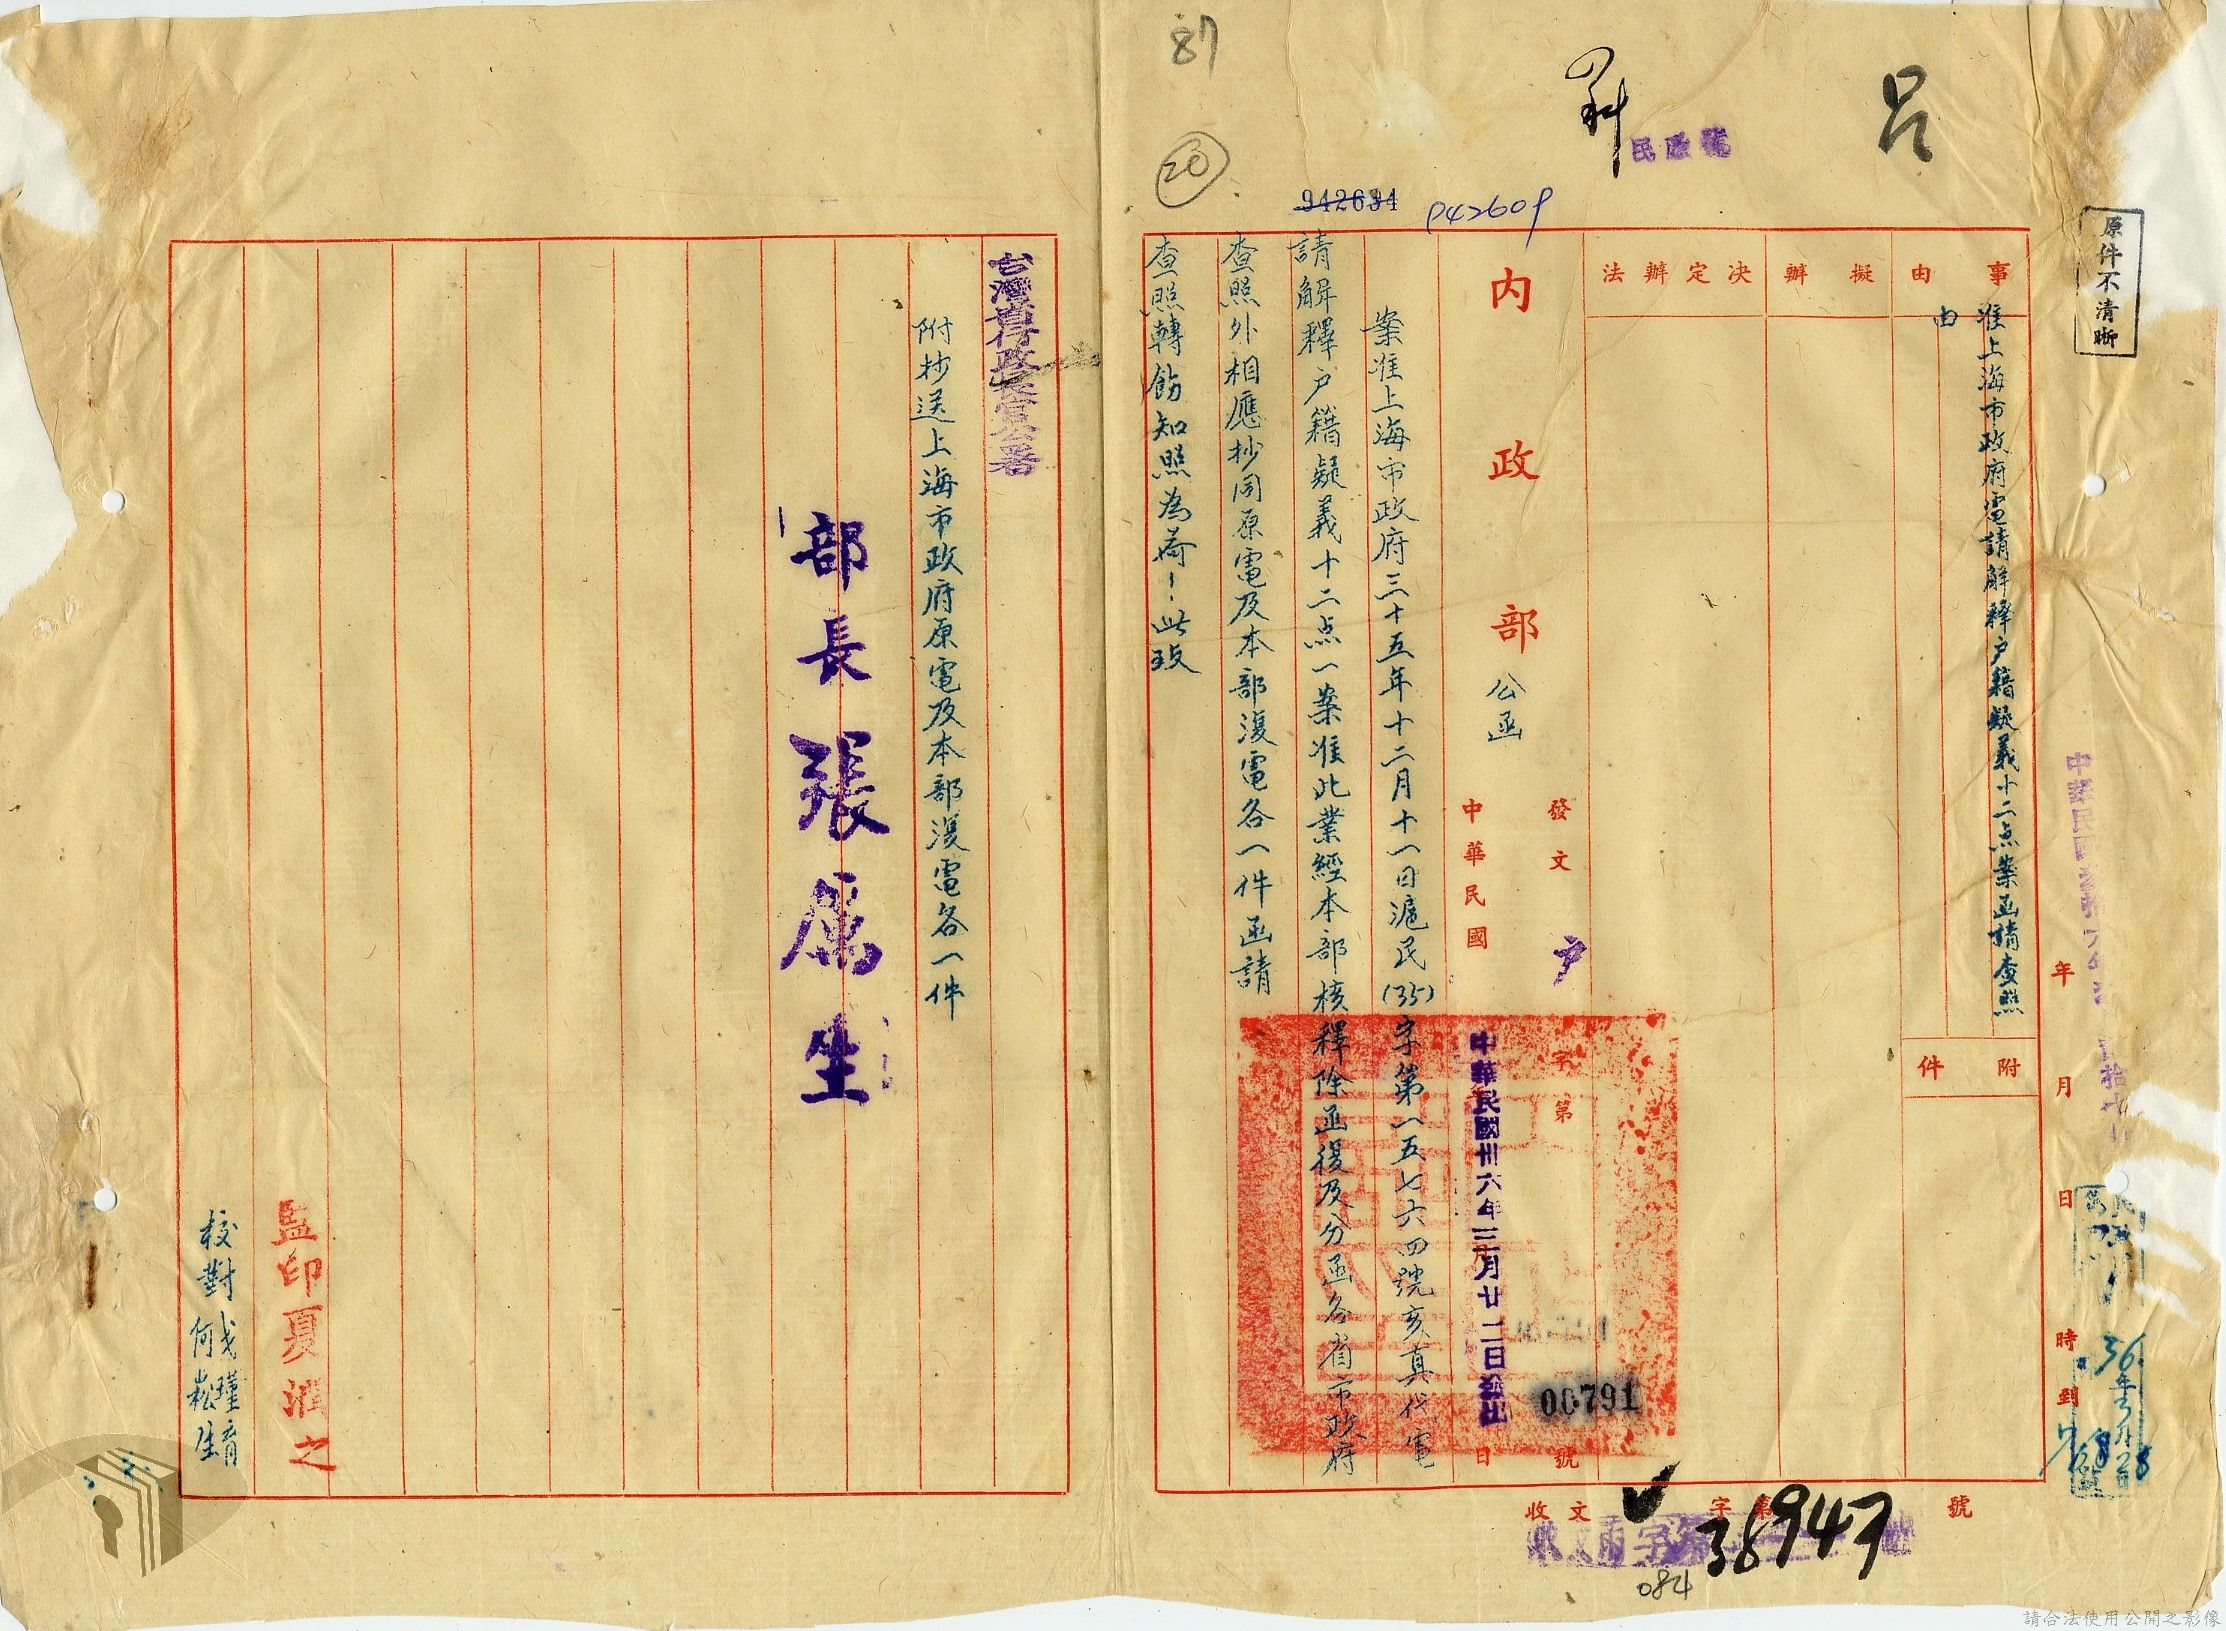 87
科
呂
20
942634
942609
原件不清晰
事由
准上海市政府電請解釋户籍疑義十二点案函請查照
由
附件
擬辦
決定辦法
年月日時到
內政部公函
發文户字第00791號
中華民國卅六年三月廿二日發出
案准上海市政府三十五年十二月十一日滬民(35)字第一五七六四號亥真代電
請解釋户籍疑義十二点一案准此業經本部核釋除函復及分函各省市政府
查照外相應抄同原電及本部復電各一件函請
查照轉飭知照為荷！此致
收文字第38947號
084
台灣省行政長官公署
附抄送上海市政府原電及本部復電各一件
部長張厲生
監印夏潤之
校對
何崧生
請合法使用公開之影像